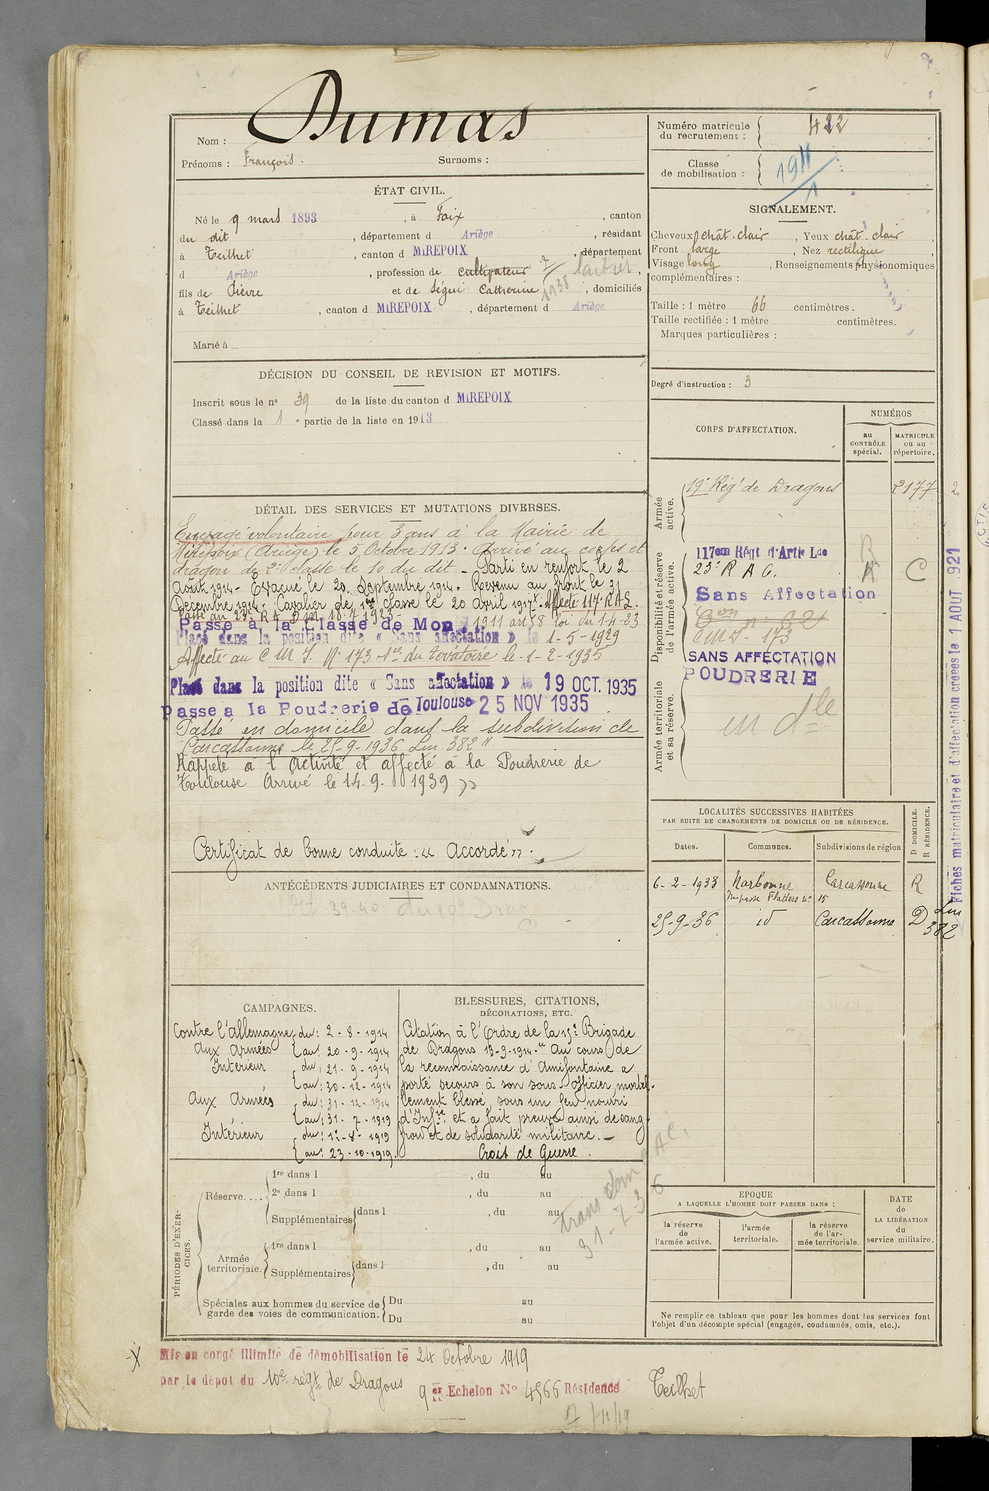 Nom : Dumas
Prénoms : François. Surnoms :
ÉTAT CIVIL.
Né le 9 mars 1893, à Foix, canton
du dit, département d Ariège, résidant
à Teilhet, canton d MIREPOIX, département
d Ariège, profession de cultivateur
1938
fils de Pierre et de Ségui Catherine, domiciliés
à Teilhet, canton d MIREPOIX, département d Ariège
Marié à
DÉCISION DU CONSEIL DE REVISION ET MOTIFS.
Inscrit sous le no 39 de la liste du canton d MIREPOIX
Classé dans la 1e partie de la liste en 1913
DÉTAIL DES SERVICES ET MUTATIONS DIVERSES.
Engagé volontaire pour 3 ans à la Mairie de
(Ariège) le 5 Octobre 1913. Arrivé au corps et
dragon de 2e classe le 10 du dit - Parti en renfort le 2
Août 1914 - Evacué le 20 Septembre 1914. Revenu au front le 31
Décembre 1914. Cavalier de 1re classe le 20 Avril 1917. Affecté 117e R.A.L.
Passé au 23e R A
Passé à la Classe de Mon 1911 art 58 loi du 1-4-23
Placé dans la position dite « Sans affectation » le 1-5-1929
Affecté au C M I. No 173 le 1-2-1935
Placé dans la position dite « Sans affectation » le 19 OCT. 1935
Passé à la Poudrerie de Toulouse 25 NOV 1935
Passé en domicile dans la subdivision de
Carcassonne le 25-9-1936 Lm 382
Rappelé à l'Activité et affecté à la Poudrerie de
Toulouse Arrivé le 14.9.1939 »
Certificat de bonne conduite : « Accordé ».
ANTÉCÉDENTS JUDICIAIRES ET CONDAMNATIONS.
CAMPAGNES.
Contre l'Allemagne du : 2-8-1914
Aux Armées au : 20-9-1914
Intérieur du : 21-9-1914
au : 30-12-1914
Aux Armées du : 31-12-1914
au : 31-7-1919
Intérieur du : 1er-8-1919
au : 23-10-1919.
BLESSURES, CITATIONS,
DÉCORATIONS, ETC.
Citation à l'Ordre de la 15e Brigade
de Dragons 13-9-1914. "Au cours de
la reconnaissance d'Amifontaine a
porté secours à son sous-officier mortel-
lement blessé, sous un feu nourri
d'Infie, et a fait preuve ainsi de sang
froid et de solidarité militaire. -
Croix de Guerre.
PÉRIODES D'EXERCICES.
Réserve.... 1re dans l , du au
2e dans l , du au
Supplémentaires dans l , du au
Armée territoriale. 1re dans l , du au
Supplémentaires dans l , du au
Spéciales aux hommes du service de Du au
garde des voies de communication. Du au
31-7-36
Numéro matricule
du recrutement : 422
Classe
de mobilisation : 1911
1
SIGNALEMENT.
Cheveux chât. clair, Yeux chât. clair,
Front large, Nez rectiligne,
Visage long, Renseignements physionomiques
complémentaires :
Taille : 1 mètre 66 centimètres.
Taille rectifiée : 1 mètre centimètres.
Marques particulières :
Degré d'instruction : 3
CORPS D'AFFECTATION.
NUMÉROS
au
CONTRÔLE
spécial.
MATRICULE
OU AU
répertoire.
Armée
active.
19e Régt de Dragons 2177
Disponibilité et réserve
de l'armée active.
117em Régt d'Artie Lde
23e R A C. C
Sans Affectation
C M I. 173
SANS AFFECTATION
POUDRERIE
Armée territoriale
et sa réserve.
LOCALITÉS SUCCESSIVES HABITÉES
PAR SUITE DE CHANGEMENTS DE DOMICILE OU DE RÉSIDENCE.
D DOMICILE.
R RÉSIDENCE.
Dates. Communes. Subdivisions de région
6-2-1933 Narbonne Carcassonne R
25-9-36 id Carcassonne D Lm 382
EPOQUE
A LAQUELLE L'HOMME DOIT PASSER DANS :
la réserve
de
l'armée active.
l'armée
territoriale.
la réserve
de l'ar-
mée territoriale.
DATE
de
LA LIBÉRATION
du
service militaire.
Ne remplir ce tableau que pour les hommes dont les services font
l'objet d'un décompte spécial (engagés, condamnés, omis, etc.).
Fiches matriculaire et d'affectation créées le 1 AOUT 921
Mis en congé illimité de démobilisation le 24 Octobre 1919
par le dépôt du 10e régt de Dragons
9e Echelon No 4566 Résidence Teilhet